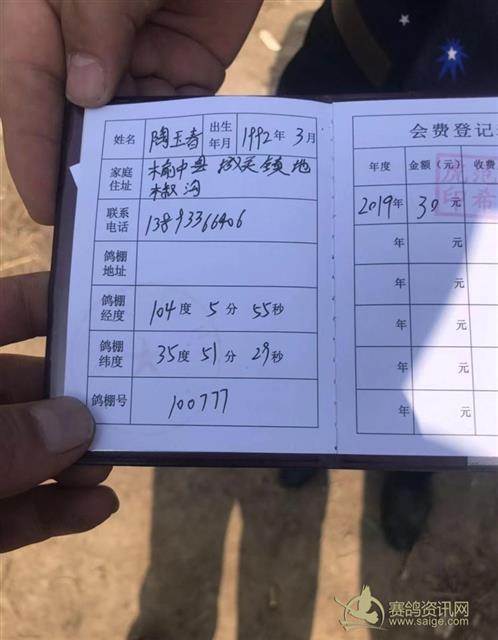 姓名 陶玉春 出生年月 1992年 3月
家庭住址 榆中县
联系电话 13893366406
鸽棚地址
鸽棚经度 104度 5分 55秒
鸽棚纬度 35度 51分 29秒
鸽棚号 100777
会费登记
年度 金额(元) 收费
2019年 30元
年 元
年 元
年 元
年 元
年 元
赛鸽资讯网
www.saige.com